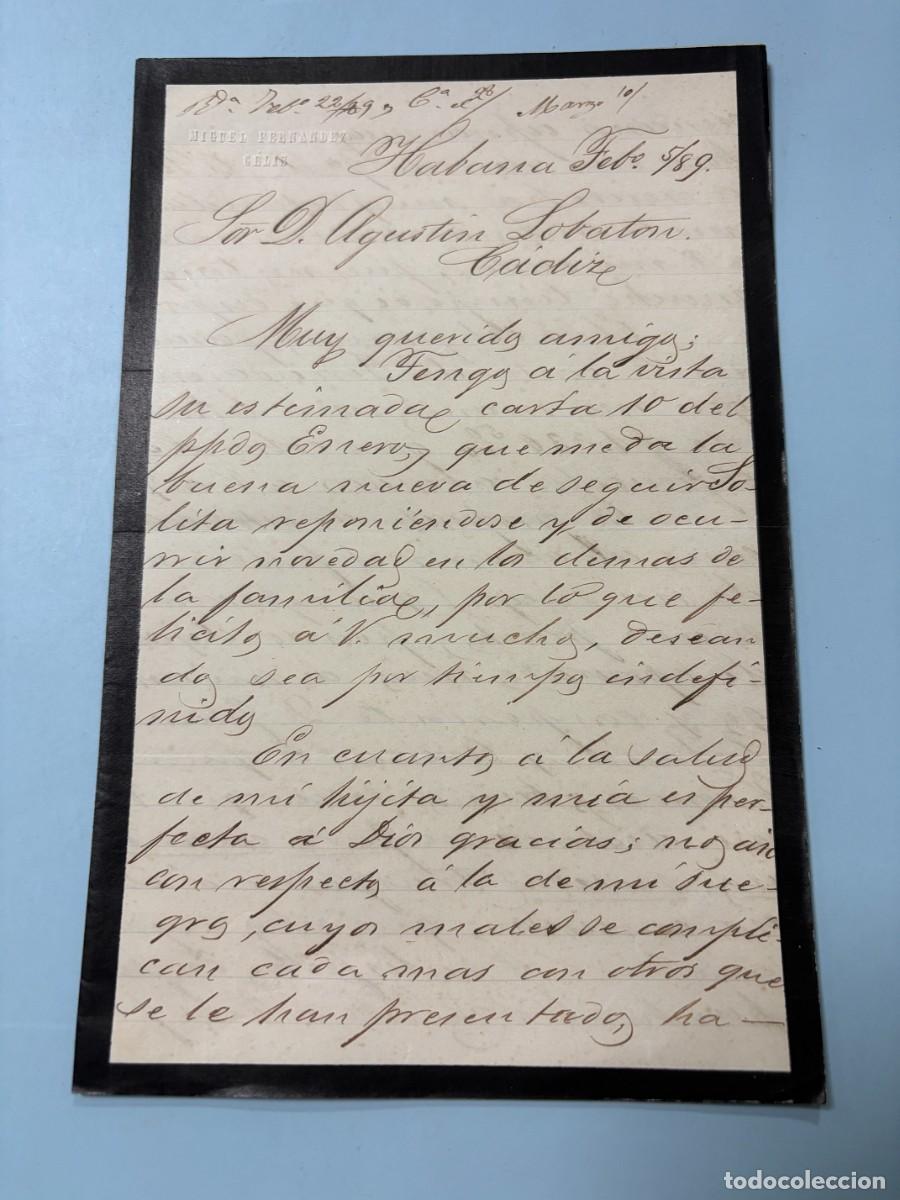 Febº 22/89 Cª 28/ Marzo 10/
MIGUEL FERNANDEZ
CELIS
Habana Febº 5/89.
Sor D. Agustin Lobaton.
Cádiz
Muy querido amigo;
Tengo á la vista
su estimada carta 10 del
ppdo Enero, que me da la
buena nueva de seguir Lo-
lita reponiéndose y de ocu-
rrir novedad en los demas de
la familia, por lo que fe-
licito á V. mucho, desean
do sea por tiempo indefi-
nido
En cuanto á la salud
de mi hijita y mia es per-
fecta á Dios gracias; no asi
con respecto á la de mi sue-
gro, cuyos males se compli-
can cada mas con otros que
se le han presentado, ha-
todocoleccion
todocoleccion.net